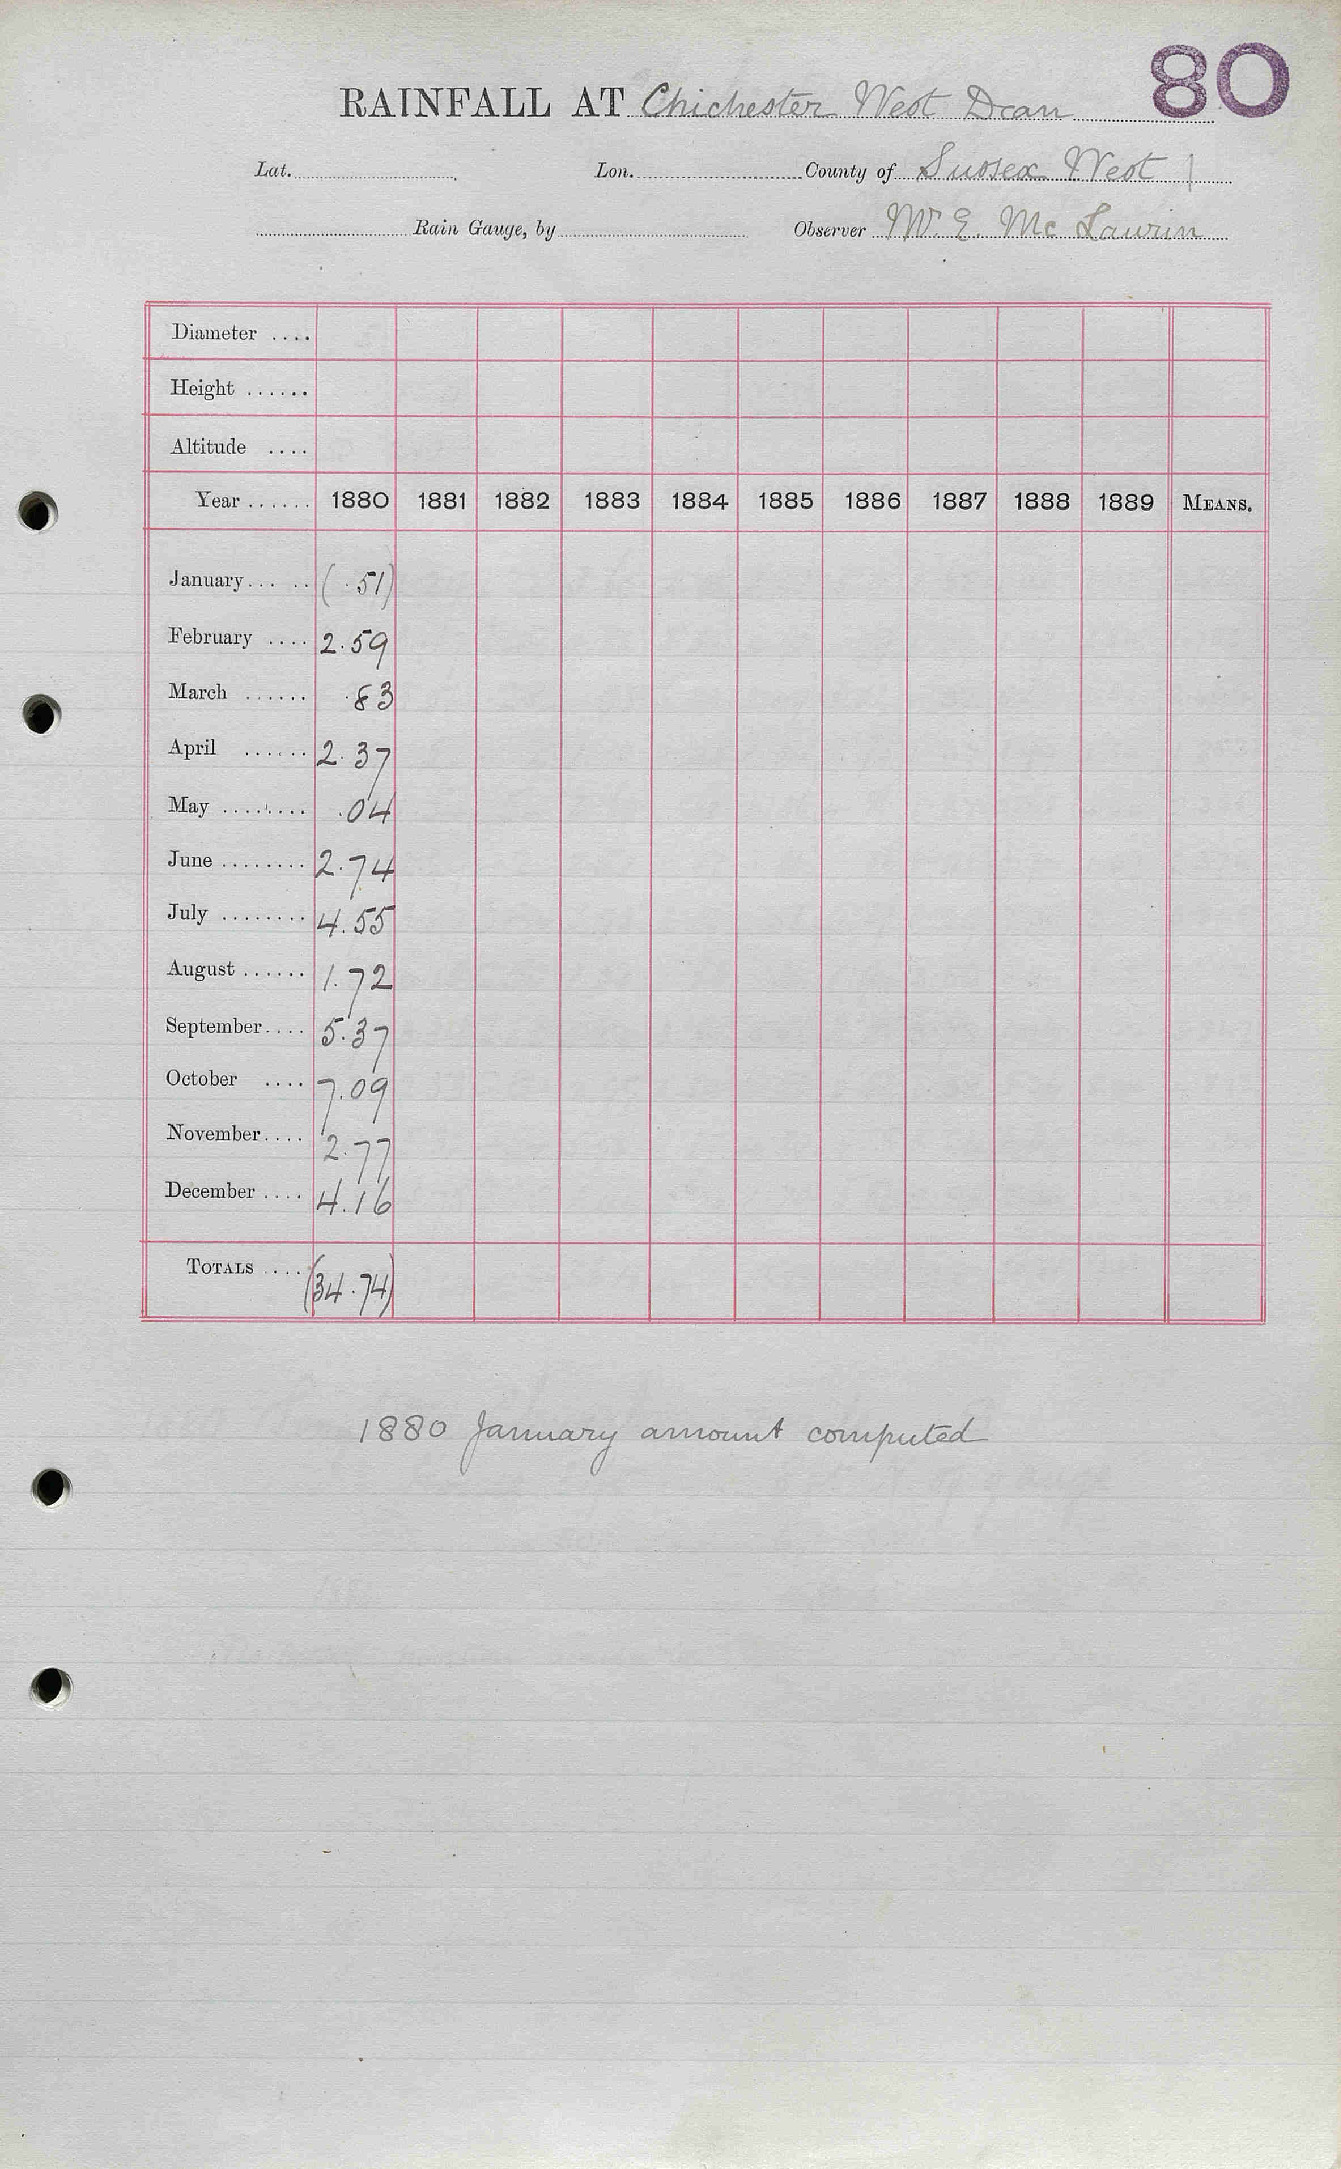 80
RAINFALL AT Chichester West Dean
Lat. Lon. County of Sussex West 1
Rain Gauge, by Observer Mr E. Mc Laurin
Diameter ....
Height ......
Altitude ....
Year ...... 1880 1881 1882 1883 1884 1885 1886 1887 1888 1889 MEANS.
January ..... ( .51)
February .... 2.59
March ...... .83
April ...... 2.37
May ........ .04
June ........ 2.74
July ........ 4.55
August ...... 1.72
September .... 5.37
October .... 7.09
November .... 2.77
December .... 4.16
TOTALS .... (34.74)
1880 January amount computed